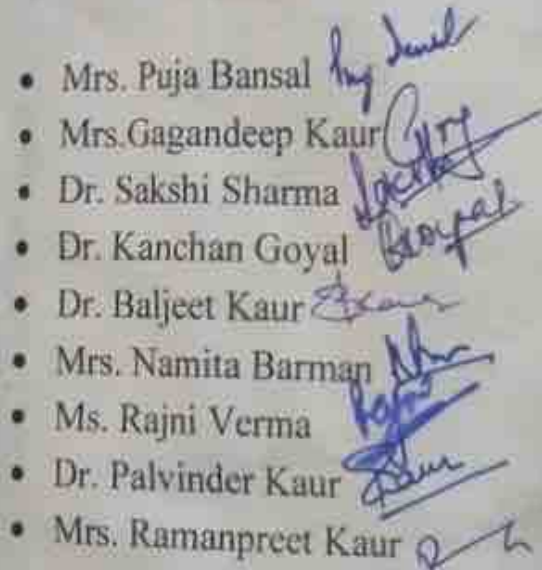 • Mrs. Puja Bansal
• Mrs.Gagandeep Kaur
• Dr. Sakshi Sharma Sakshi
• Dr. Kanchan Goyal
• Dr. Baljeet Kaur
• Mrs. Namita Barman
• Ms. Rajni Verma Rajni
• Dr. Palvinder Kaur
• Mrs. Ramanpreet Kaur